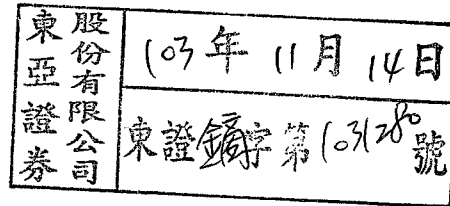 東亞證券
股份有限公司
103年11月14日
東證鏑字第1031280號